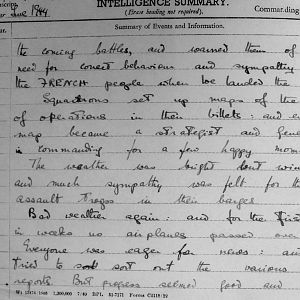 INTELLIGENCE SUMMARY.
(Erase heading not required).
Commanding
June 1944
Summary of Events and Information.
the coming battles, and warned them of
need for correct behaviour and sympathy
the FRENCH people when we landed the
Squadrons set up maps of the
of operations in their billets: and e
map became a strategist and Gene
in commanding for a few happy mom
The weather was bright but wind
and much sympathy was felt for th
assault troops in their barges
Bad weather again: and for the first
in weeks no airplanes passed over
Everyone was eager for news: and
tried to sort out the various
reports. But progress seemed good and
1,200,000 7/40 Forms C2118/22